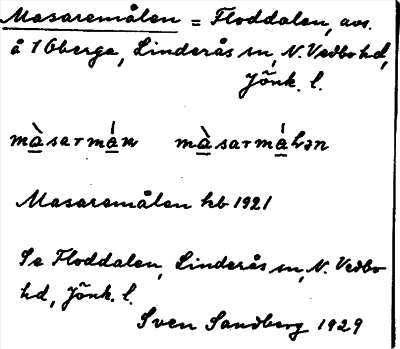 Masaremålen = Floddalen, avs.
å 1 Oberga, Linderås sn, N. Vedbo hd,
Jönk. l.
mà̱sarmá̱n mà̱sarmá̱Lən
Masaremålen hb 1921
Se Floddalen, Linderås sn, N. Vedbo
hd, Jönk. l.
Sven Sandberg 1929